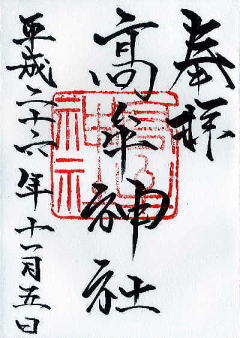 奉拝
高牟神社
平成二十六年十一月五日